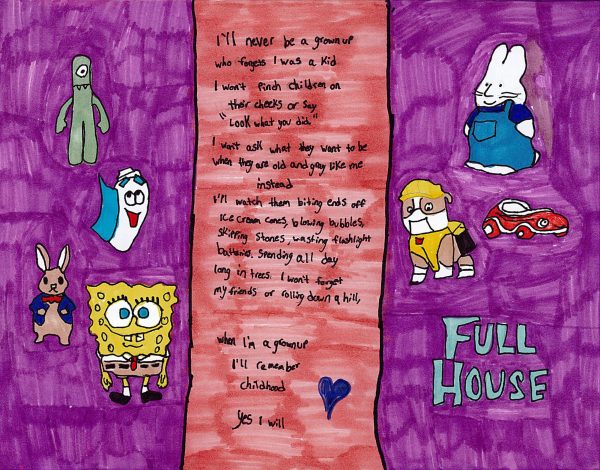 I'll never be a grown up
who forgets I was a kid
I won't pinch children on
their cheeks or say
"Look what you did."
I won't ask what they want to be
when they are old and gray like me
instead
I'll watch them biting ends off
Ice cream cones, blowing bubbles,
skipping stones, wasting flashlight
batteries. Spending all day
long in trees. I won't forget
my friends or rolling down a hill,
when I'm a grownup
I'll remember
childhood
Yes I will
FULL
HOUSE